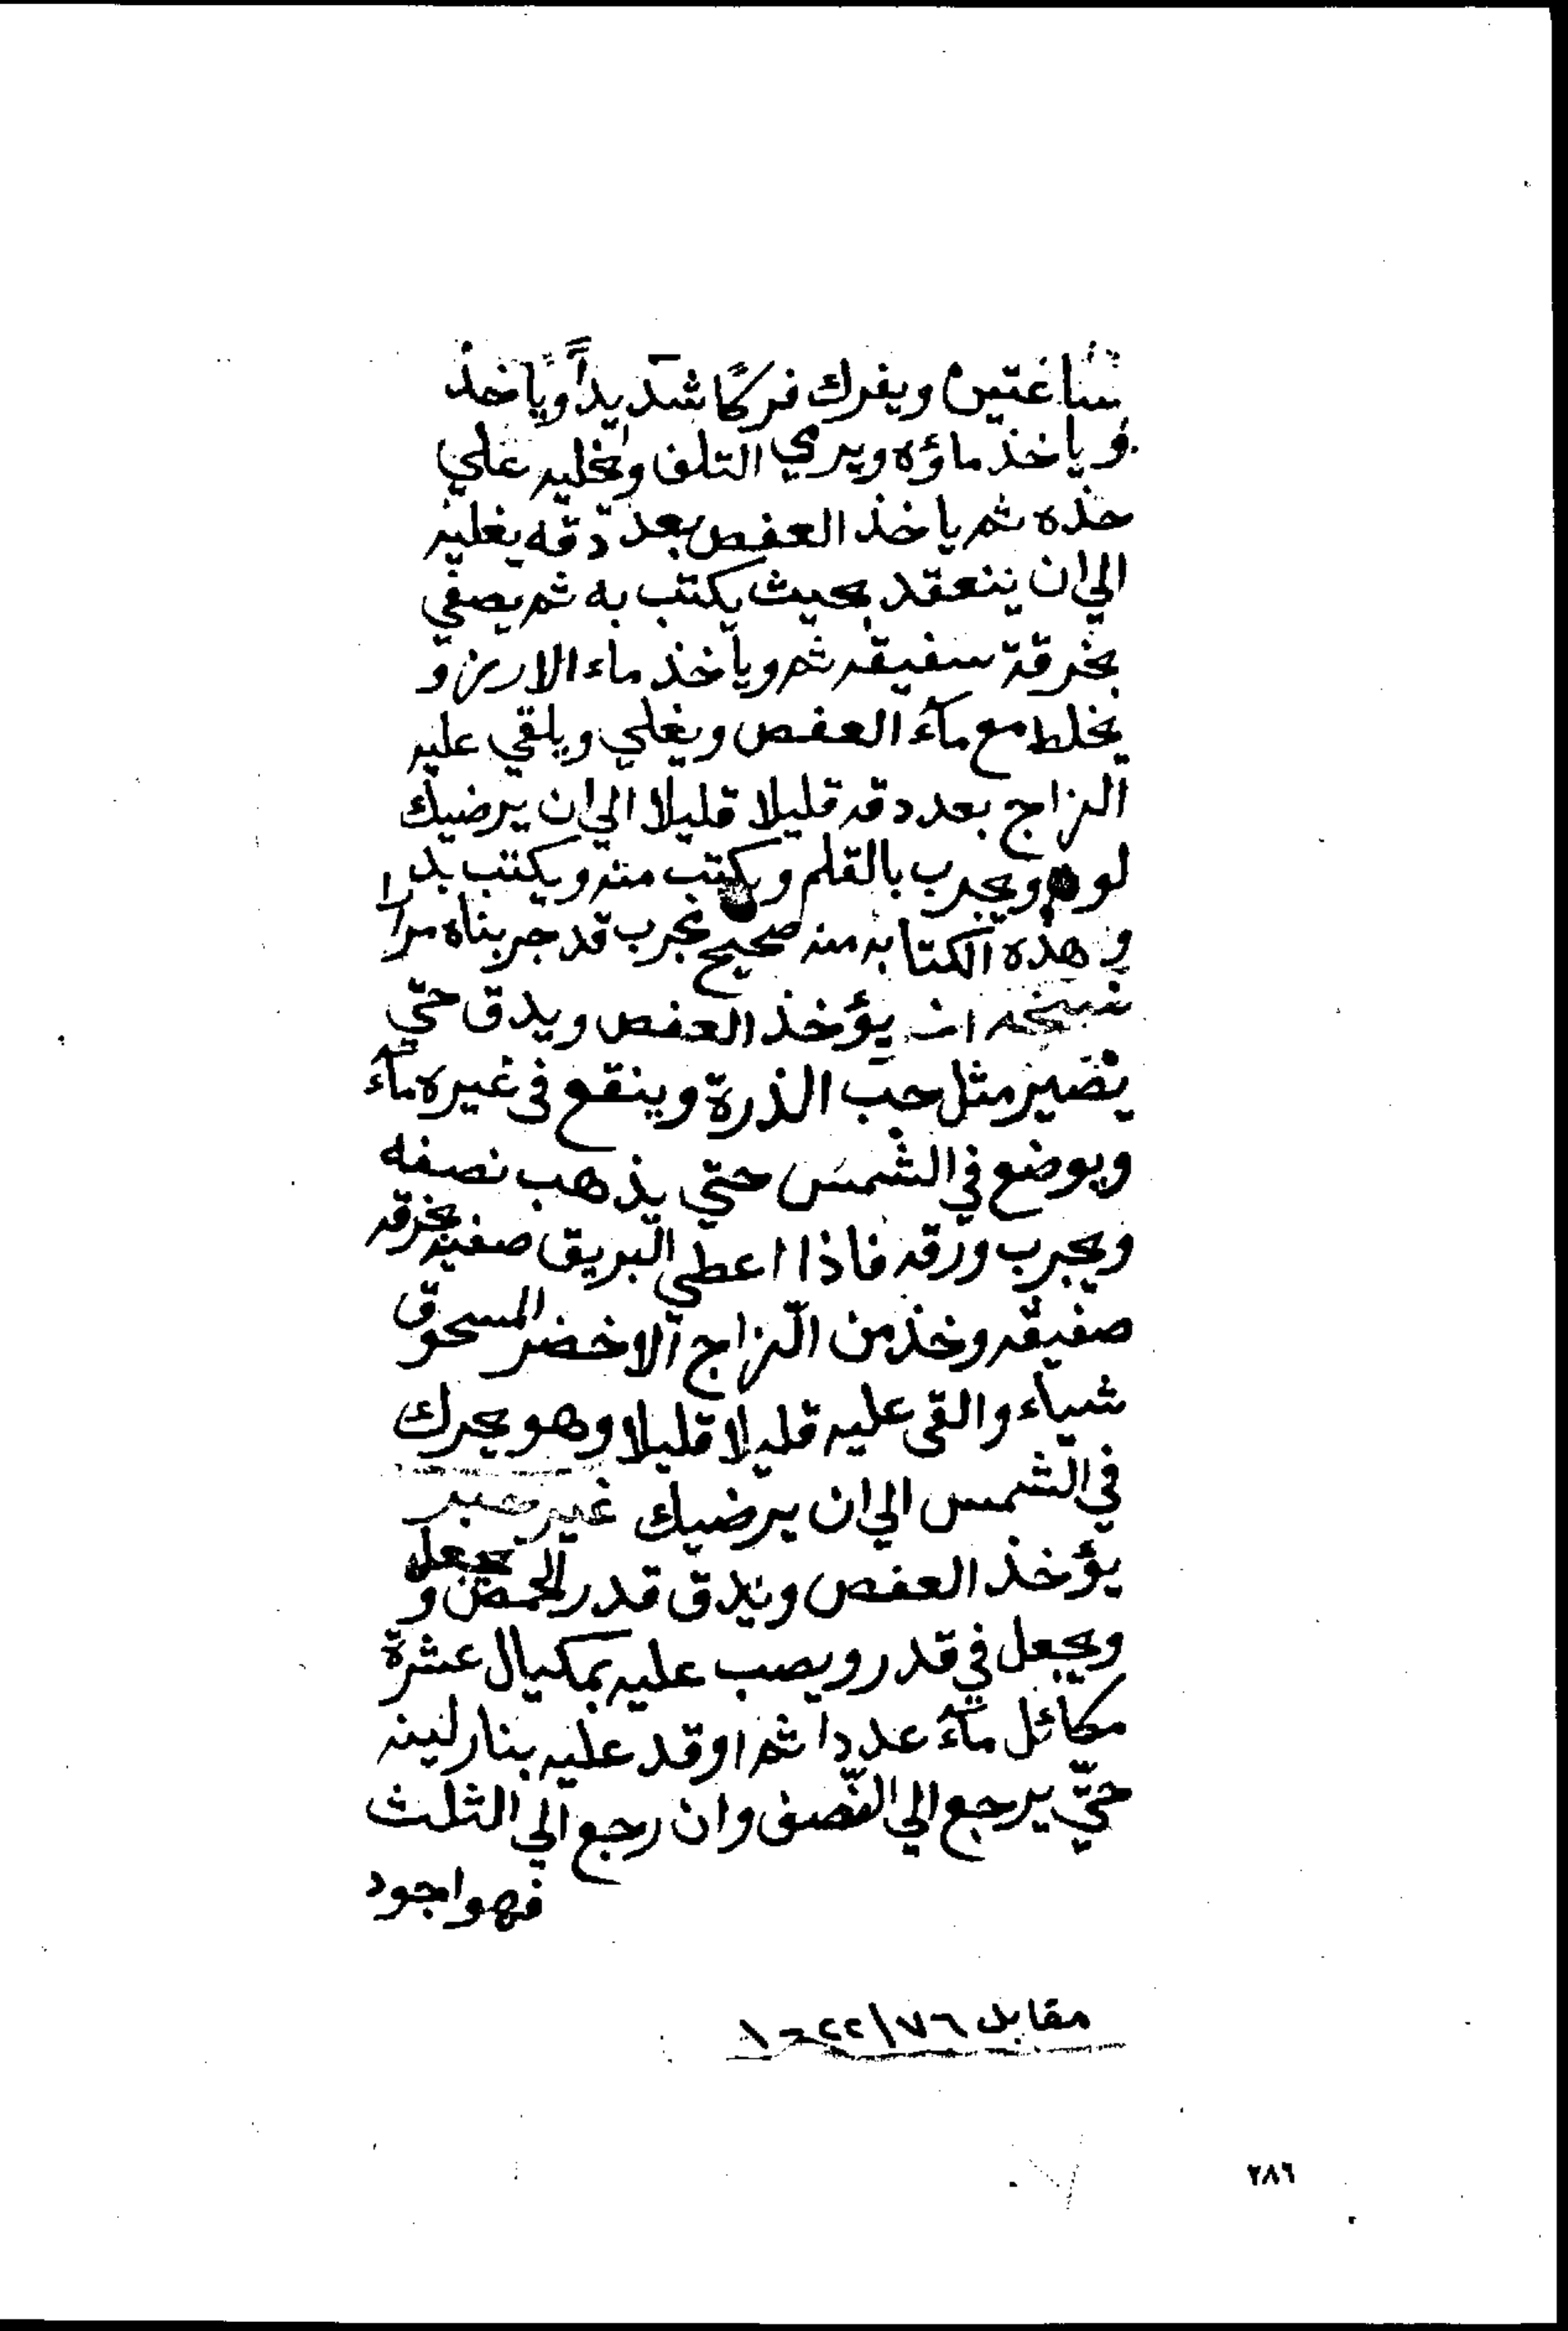 ساعتين ويفرك فركًا شديداً وياخذ
وياخذ ماؤه ويرمي التلف ويخليه علي
حذه ثم ياخذ العفص بعد دقه يغليه
الي ان ينعقد بحيث يكتب به ثم يصفي
بخرقة سفيقه ثم وياخذ ماء الارز و
يخلط مع مآء العفص ويغلي ويلقي عليه
الزاج بعد دقه قليلا قليلا الي ان يرضيك
لونه ويجرب بالقلم ويكتب منه ويكتب به
وهذه الكتابه منه صحيح مجرب قد جربناه مرارا
نسخه ان يؤخذ العفص ويدق حتي
يصير مثل حب الذرة وينقع في غيره مآء
ويوضع في الشمس حتي يذهب نصفه
ويجرب ورقه فاذا اعطي البريق صفيه بخرقه
صفيقه وخذ من الزاج الاخضر المسحوق
شياء والقى عليه قليلا قليلا وهو يحرك
في الشمس الي ان يرضيك غيره حبر
يؤخذ العفص ويدق قدر الحمص ويجعل
ويجعل في قدر ويصب عليه بمكيال عشرة
مكائل مآء عددا ثم اوقد عليه بنار لينه
حتّي يرجع الي النّصف وان رجع الي الثلث
فهو اجود
مقابل
٢٨٦